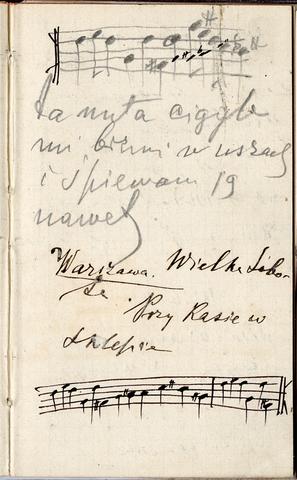 ta nuta ciągle
mi brzmi w uszach
i śpiewam ją
nawet.
Warszawa. Wielka Sobo-
ta. Przy Kasie w
sklepie